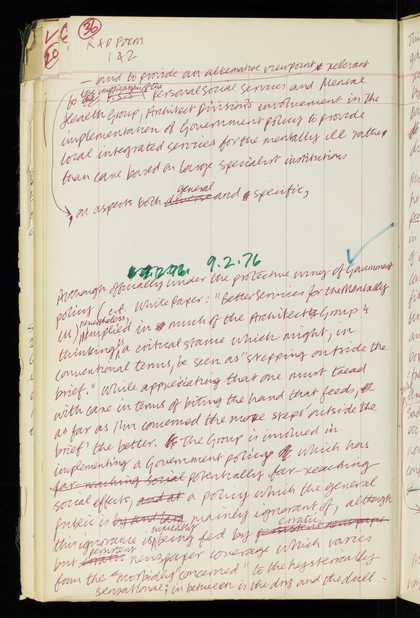 LC
20
36
R & D POEM
1 & 2
— and to provide an alternative viewpoint relevant
to the Personal Social Services and Mental
Health Group, Architect Division's involvement in the
implementation of Government policy to provide
local integrated services for the mentally ill rather
than care based on large specialist institutions
general
on aspects both and specific,
9.2.76
Although officially under the protective wing of Government
policy (cit. White Paper: "Better Services for the Mentally
Ill) nonetheless, implied in much of the Architects Group's
thinking is a critical stance which might, in
conventional terms, be seen as "stepping outside the
brief." While appreciating that one must tread
with care in terms of biting the hand that feeds,
as far as I'm concerned the more steps outside the
brief' the better. The Group is involved in
implementing a Government policy which has
far reaching social potentially far-reaching
social effects, and at a policy which the general
public is by and large mainly ignorant of, although
this ignorance is being fed by erratic
but persistent newspaper coverage which varies
from the "morbidly concerned" to the hysterically
sensational; in between is the dry and the dull -